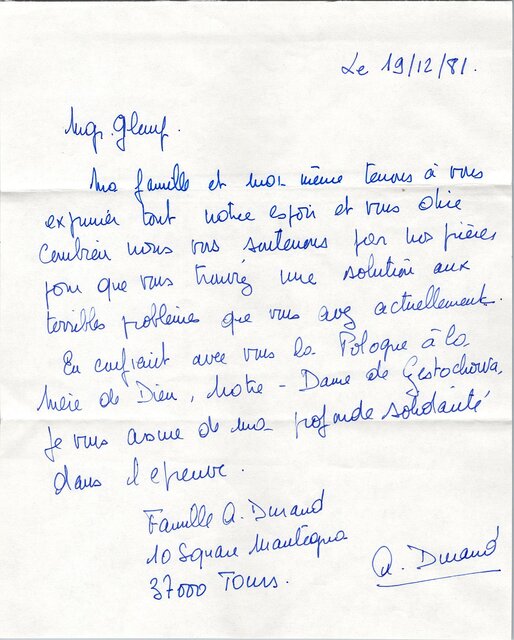 Le 19/12/81.
Mgr. Glemp.
Ma famille et moi même tenons à vous
exprimer tout notre espoir et vous dire
combien nous vous soutenons par nos prières
pour que vous trouviez une solution aux
terribles problèmes que vous avez actuellement.
En confiant avec vous la Pologne à la
Mère de Dieu, Notre-Dame de Çestochowa,
je vous assure de ma profonde solidarité
dans l'épreuve.
Famille A. Durand
10 Square Mantegna
37000 Tours.
A. Durand